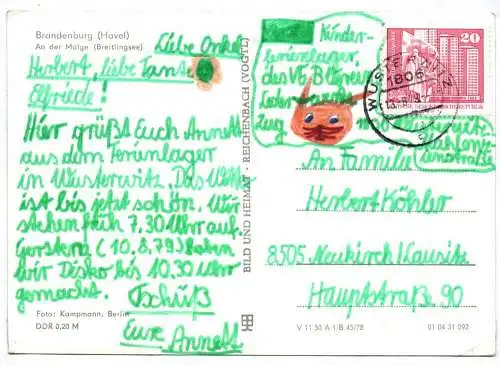 Brandenburg (Havel)
An der Malge (Breitlingsee)
Liebe Onkel
Herbert, liebe Tante
Elfriede!
Hier grüßt Euch Annett
aus dem Ferienlager
in Wusterwitz. Das
ist bis jetzt schön. Wir
stehen früh 7.30 Uhr auf.
Gestern (10.8.79) haben
wir Disko bis 10.30 Uhr
gemacht.
Tschüß
Eure Annett
Foto: Kampmann, Berlin
DDR 0,20 M
BILD UND HEIMAT · REICHENBACH (VOGTL)
Kinder-
ferienlager
des VEB
Leder
zeug
20
WUSTERWITZ
1806
An Familie
Herbert Köhler
8505 Neukirch/Lausitz
Hauptstraße 90
V 11 50 A 1/B 45/78
01 04 31 092